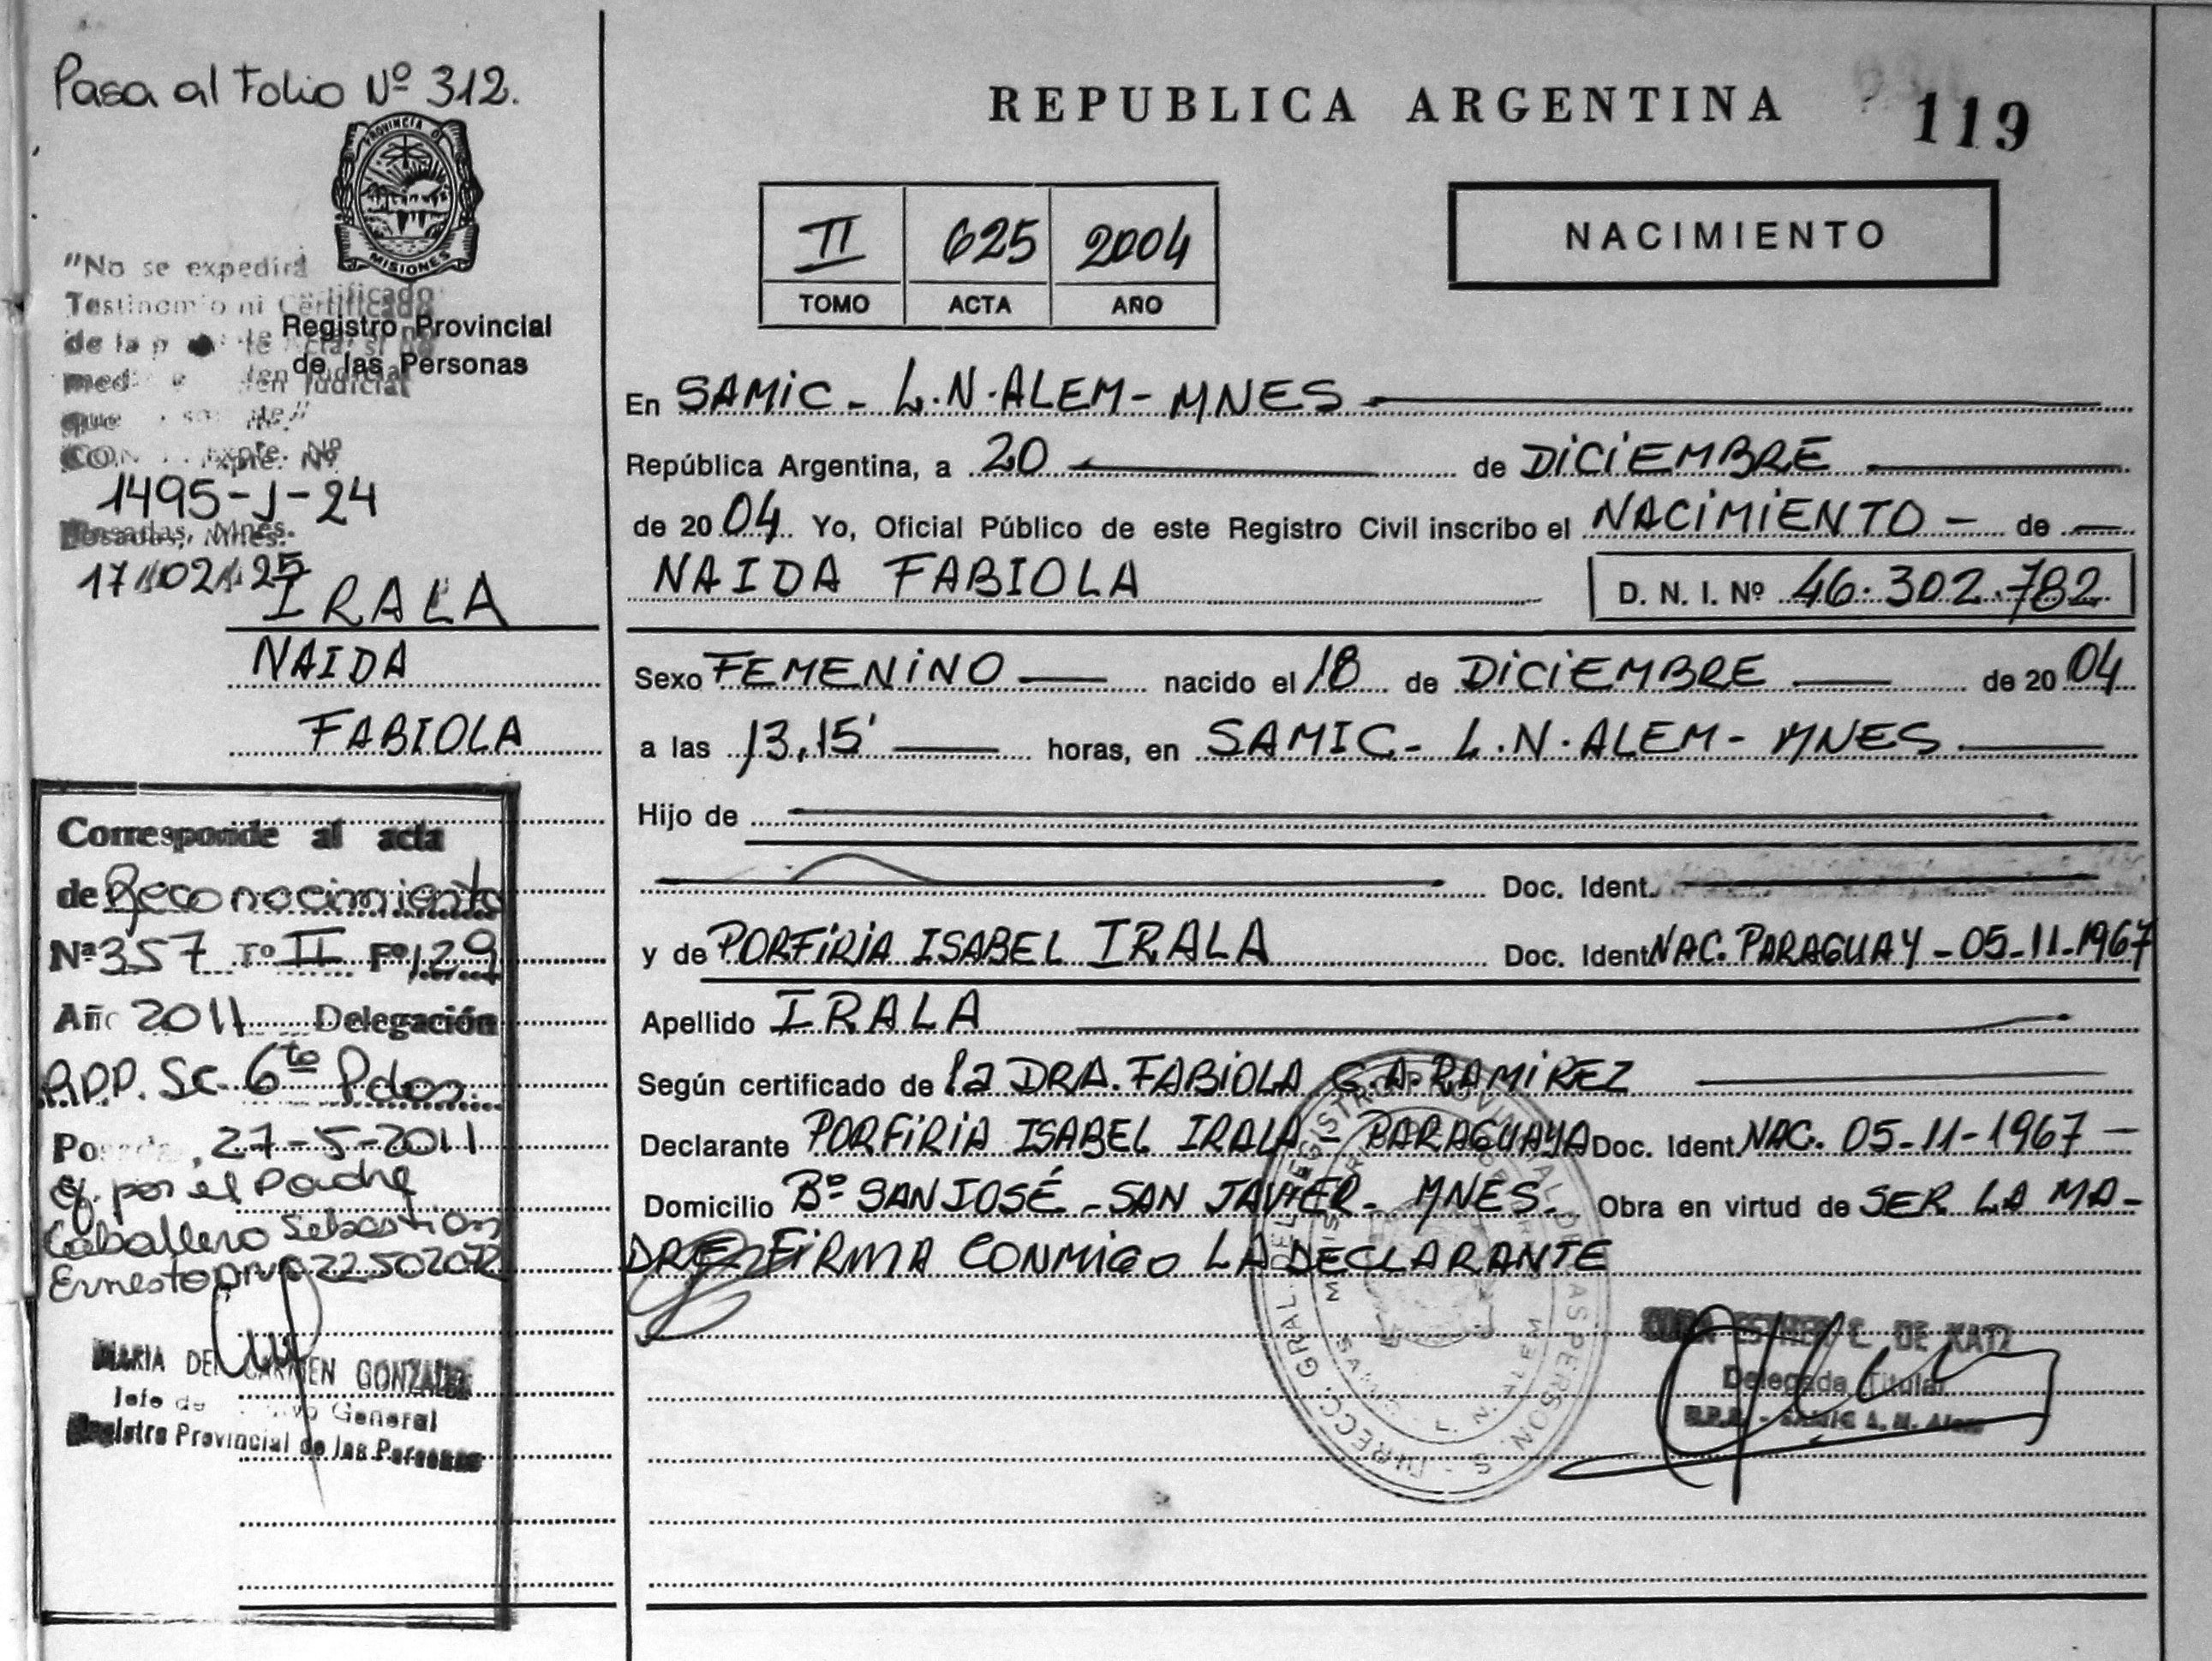 Pasa al Folio Nº 312.
PROVINCIA D
MISIONES
"No se expedirá
Testimonio ni Certificado
de la
Acta, si no
Judicial
que
Expte. Nº
1495-J-24
Posadas, Mnes.
17 02 25
Registro Provincial
de las Personas
IRALA
NAIDA
FABIOLA
Corresponde al acta
de Reconocimiento
Nª 357 Tº II Fº 129
Año 2011 Delegación
R.P.P. Sc. 6ta Pdas.
27-5-2011
Ef. por el Padre
Caballero Sebastian
Ernesto DNI
MARIA DEL CARMEN GONZALEZ
Jefe de General
Registro Provincial de las Personas
REPUBLICA ARGENTINA
119
II 625 2004
TOMO ACTA AÑO
NACIMIENTO
En SAMIC - L.N. ALEM - MNES
República Argentina, a 20 de DICIEMBRE
de 2004 Yo, Oficial Público de este Registro Civil inscribo el NACIMIENTO - de
NAIDA FABIOLA D. N. I. Nº 46.302.782
Sexo FEMENINO nacido el 18 de DICIEMBRE de 2004
a las 13,15' horas, en SAMIC - L.N. ALEM - MNES
Hijo de
Doc. Ident.
y de PORFIRIA ISABEL IRALA Doc. Ident NAC. PARAGUAY - 05-11-1967
Apellido IRALA
Según certificado de la DRA. FABIOLA G.A. RAMIREZ
Declarante PORFIRIA ISABEL IRALA - PARAGUAYA Doc. Ident. NAC. 05-11-1967 -
Domicilio Bº SAN JOSÉ - SAN JAVIER - MNES. Obra en virtud de SER LA MA-
DRE FIRMA CONMIGO LA DECLARANTE
C. DE KATZ
Delegada Titular
R.P.P. - SAMIC L. N. Alem